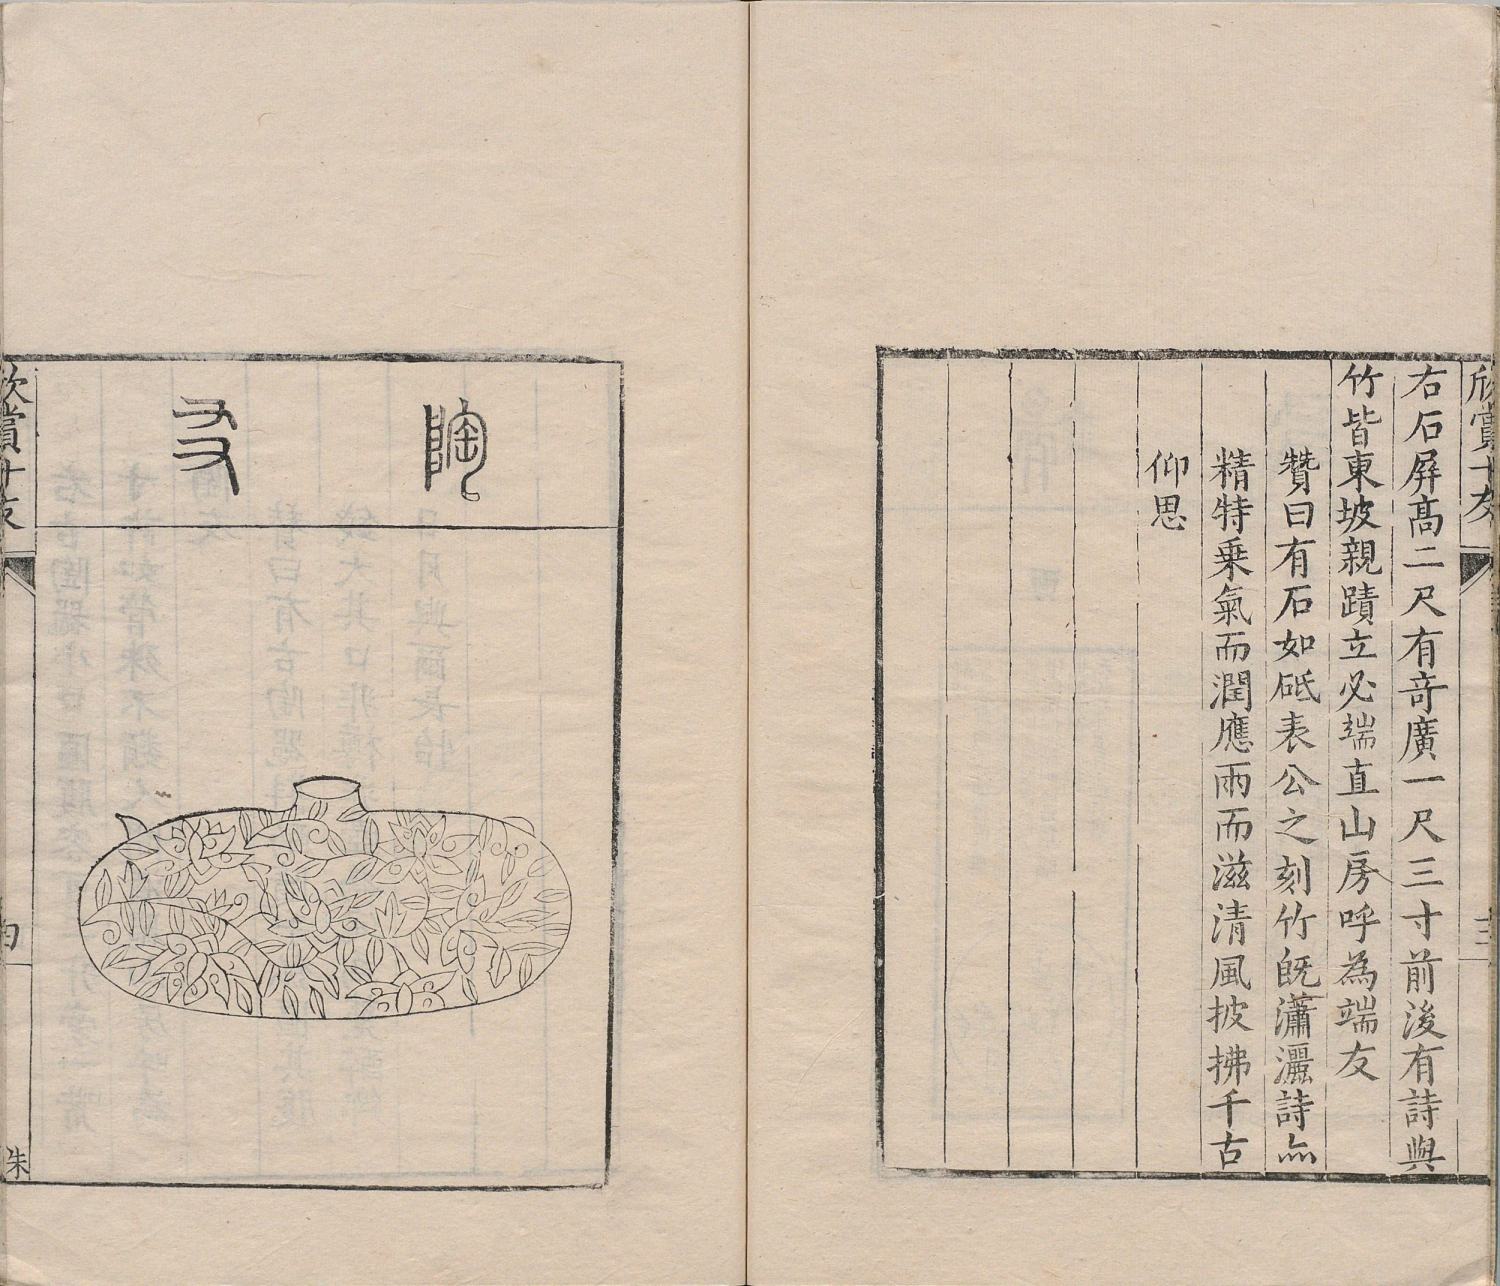 欣賞十友
三
右石屏高二尺有竒廣一尺三寸前後有詩與
竹皆東坡親蹟立必端直山房呼為端友
贊曰有石如砥表公之刻竹旣瀟灑詩亦
精特乗氣而潤應雨而滋清風披拂千古
仰思
陶友
欣賞十友
朱